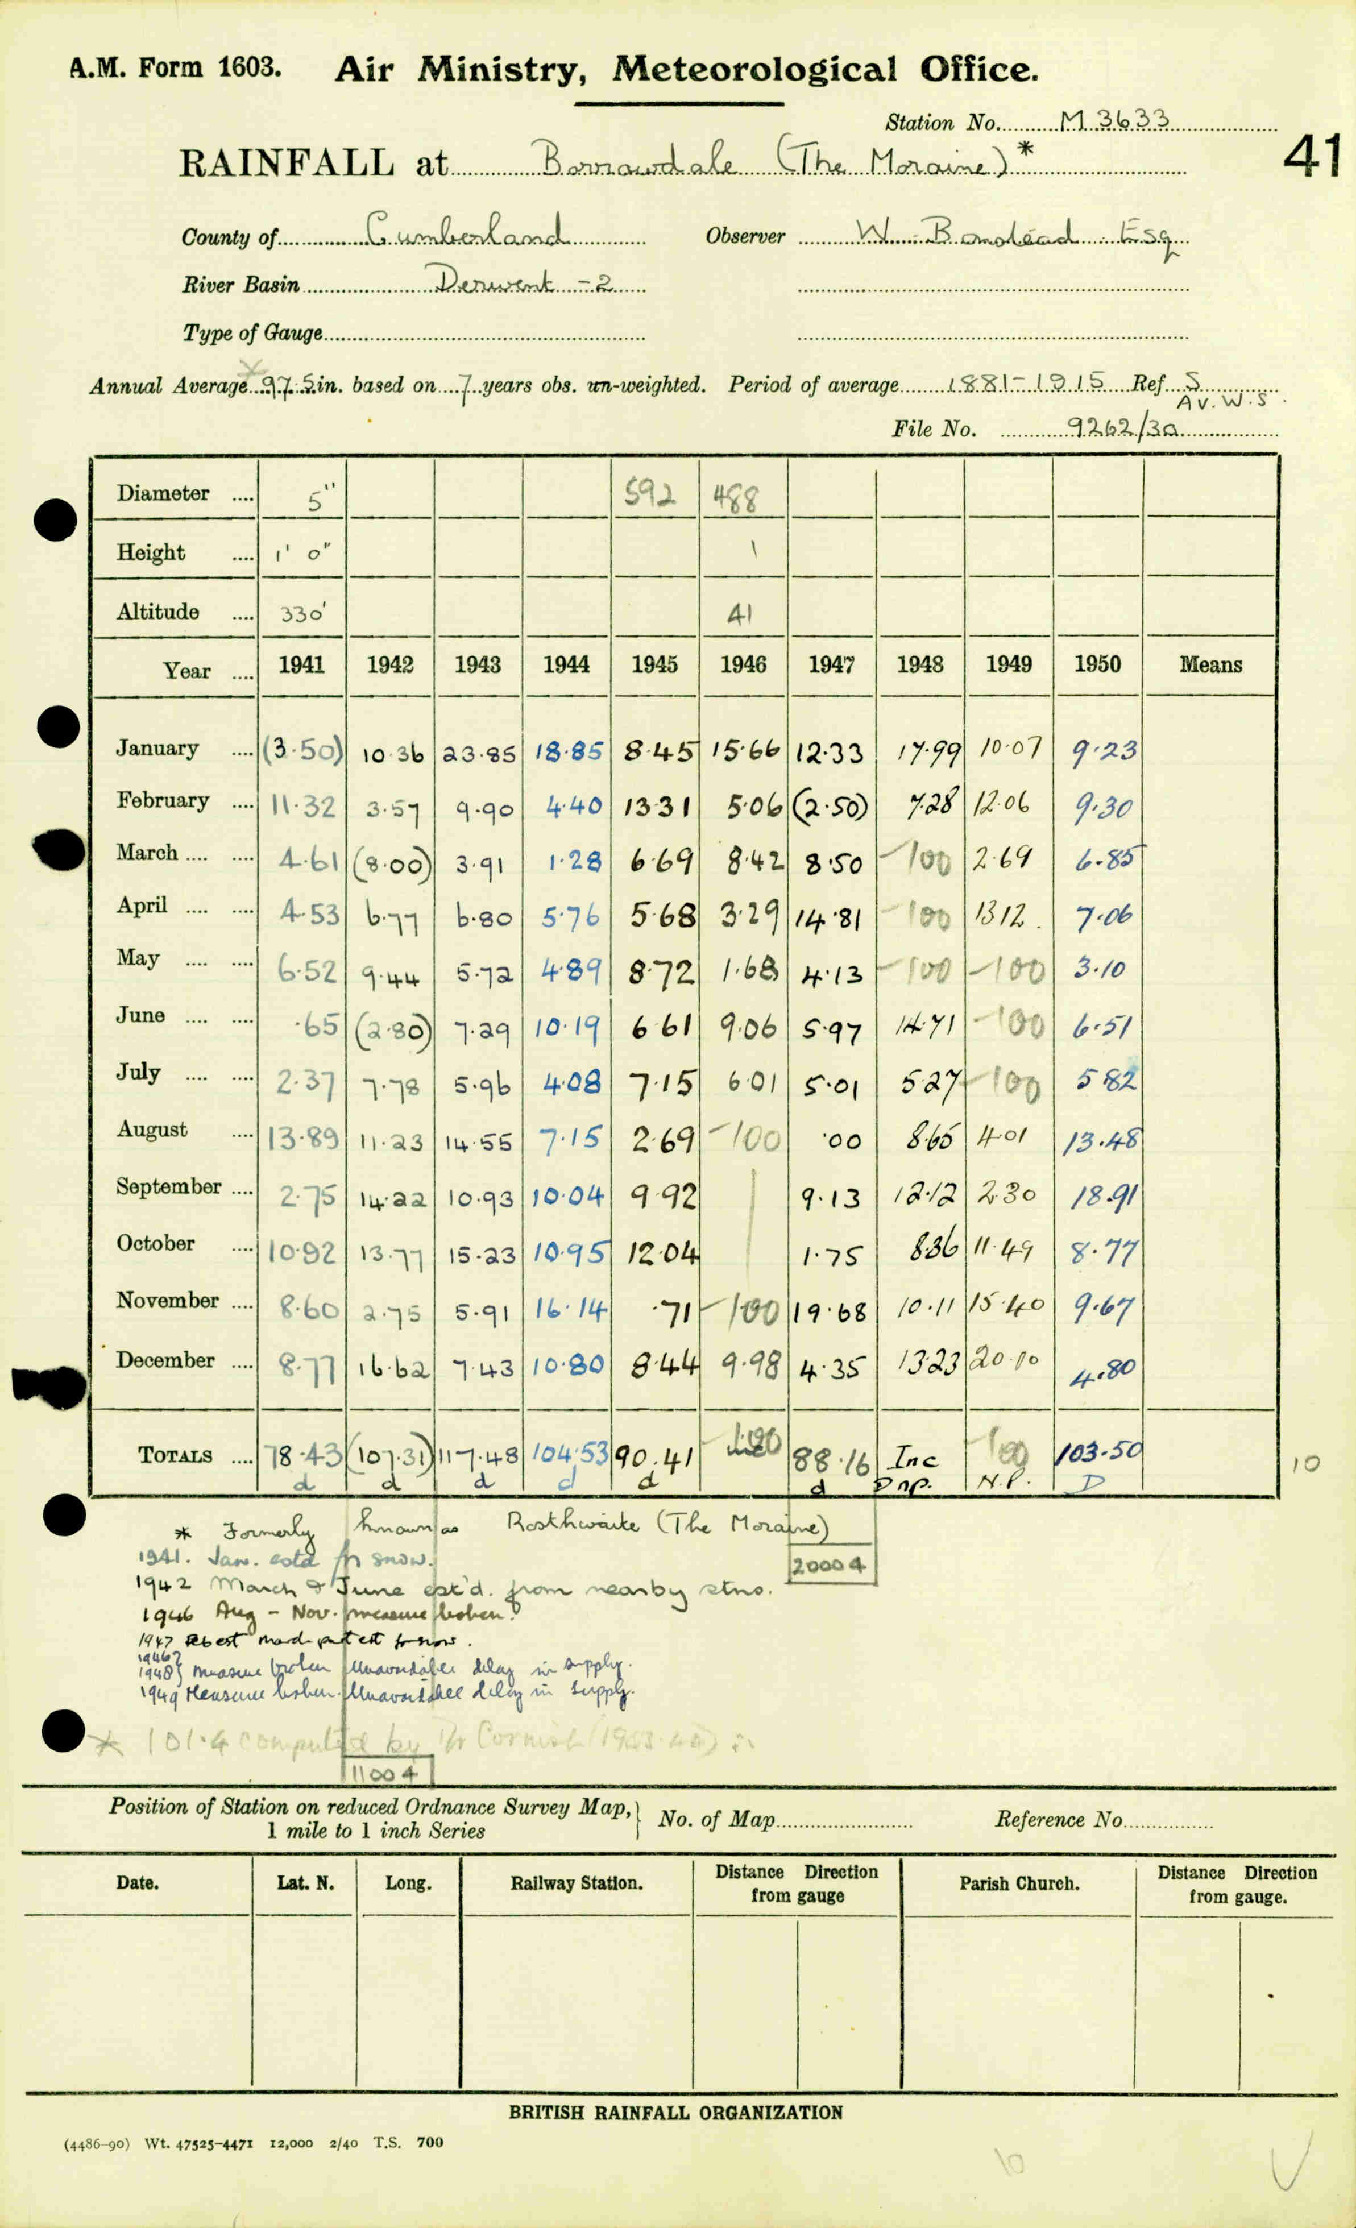 A.M. Form 1603. Air Ministry, Meteorological Office.
Station No. M 3633
41
RAINFALL at Borrowdale (The Moraine)*
County of Cumberland Observer W. Banstead Esq
River Basin Derwent - 2
Type of Gauge
Annual Average 97.5 in. based on 7 years obs. un-weighted. Period of average 1881-1915 Ref. S
Av. W.S.
File No. 9262/30
Diameter .... 5" 592 488
Height .... 1' 0" 1
Altitude .... 330' 41
Year .... 1941 1942 1943 1944 1945 1946 1947 1948 1949 1950 Means
January .... (3.50) 10.36 23.85 18.85 8.45 15.66 12.33 17.99 10.07 9.23
February .... 11.32 3.57 9.90 4.40 13.31 5.06 (2.50) 7.28 12.06 9.30
March .... .... 4.61 (8.00) 3.91 1.28 6.69 8.42 8.50 -100 2.69 6.85
April .... .... 4.53 6.77 6.80 5.76 5.68 3.29 14.81 -100 13.12 7.06
May .... .... 6.52 9.44 5.72 4.89 8.72 1.68 4.13 -100 -100 3.10
June .... .... .65 (2.80) 7.29 10.19 6.61 9.06 5.97 14.71 -100 6.51
July .... .... 2.37 7.78 5.96 4.08 7.15 6.01 5.01 5.27 -100 5.82
August .... 13.89 11.23 14.55 7.15 2.69 -100 .00 8.65 4.01 13.48
September .... 2.75 14.22 10.93 10.04 9.92 9.13 12.12 2.30 18.91
October .... 10.92 13.77 15.23 10.95 12.04 1.75 8.36 11.49 8.77
November .... 8.60 2.75 5.91 16.14 .71 -100 19.68 10.11 15.40 9.67
December .... 8.77 16.62 7.43 10.80 8.44 9.98 4.35 13.23 20.10 4.80
TOTALS .... 78.43 (107.31) 117.48 104.53 90.41 -100 88.16 Inc -100 103.50 10
d d d d d d Dnp. N.P. D
* Formerly known as Rosthwaite (The Moraine)
1941. Jan. estd for snow.
20004
1942 March & June est'd. from nearby stns.
1946 Aug - Nov. measure broken.
1947 Feb est
1946?
1948} Measure broken Unavoidable delay in supply.
1949 Measure broken. Unavoidable delay in supply.
* 101.4 computed by Dr Cornish
11004
Position of Station on reduced Ordnance Survey Map,} No. of Map Reference No.
1 mile to 1 inch Series
Date. Lat. N. Long. Railway Station. Distance Direction from gauge Parish Church. Distance Direction from gauge.
BRITISH RAINFALL ORGANIZATION
(4486-90) Wt. 47525-4471 12,000 2/40 T.S. 700
10